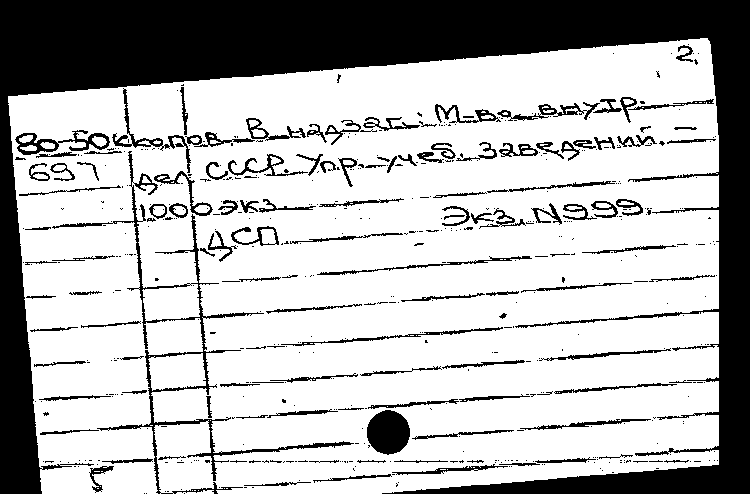 2.
80-50 ккопов. В надзаг.: М-во внутр.
697 дел СССР. Упр. учеб. заведений. —
1000 экз. Экз. N999.
ДСП
5